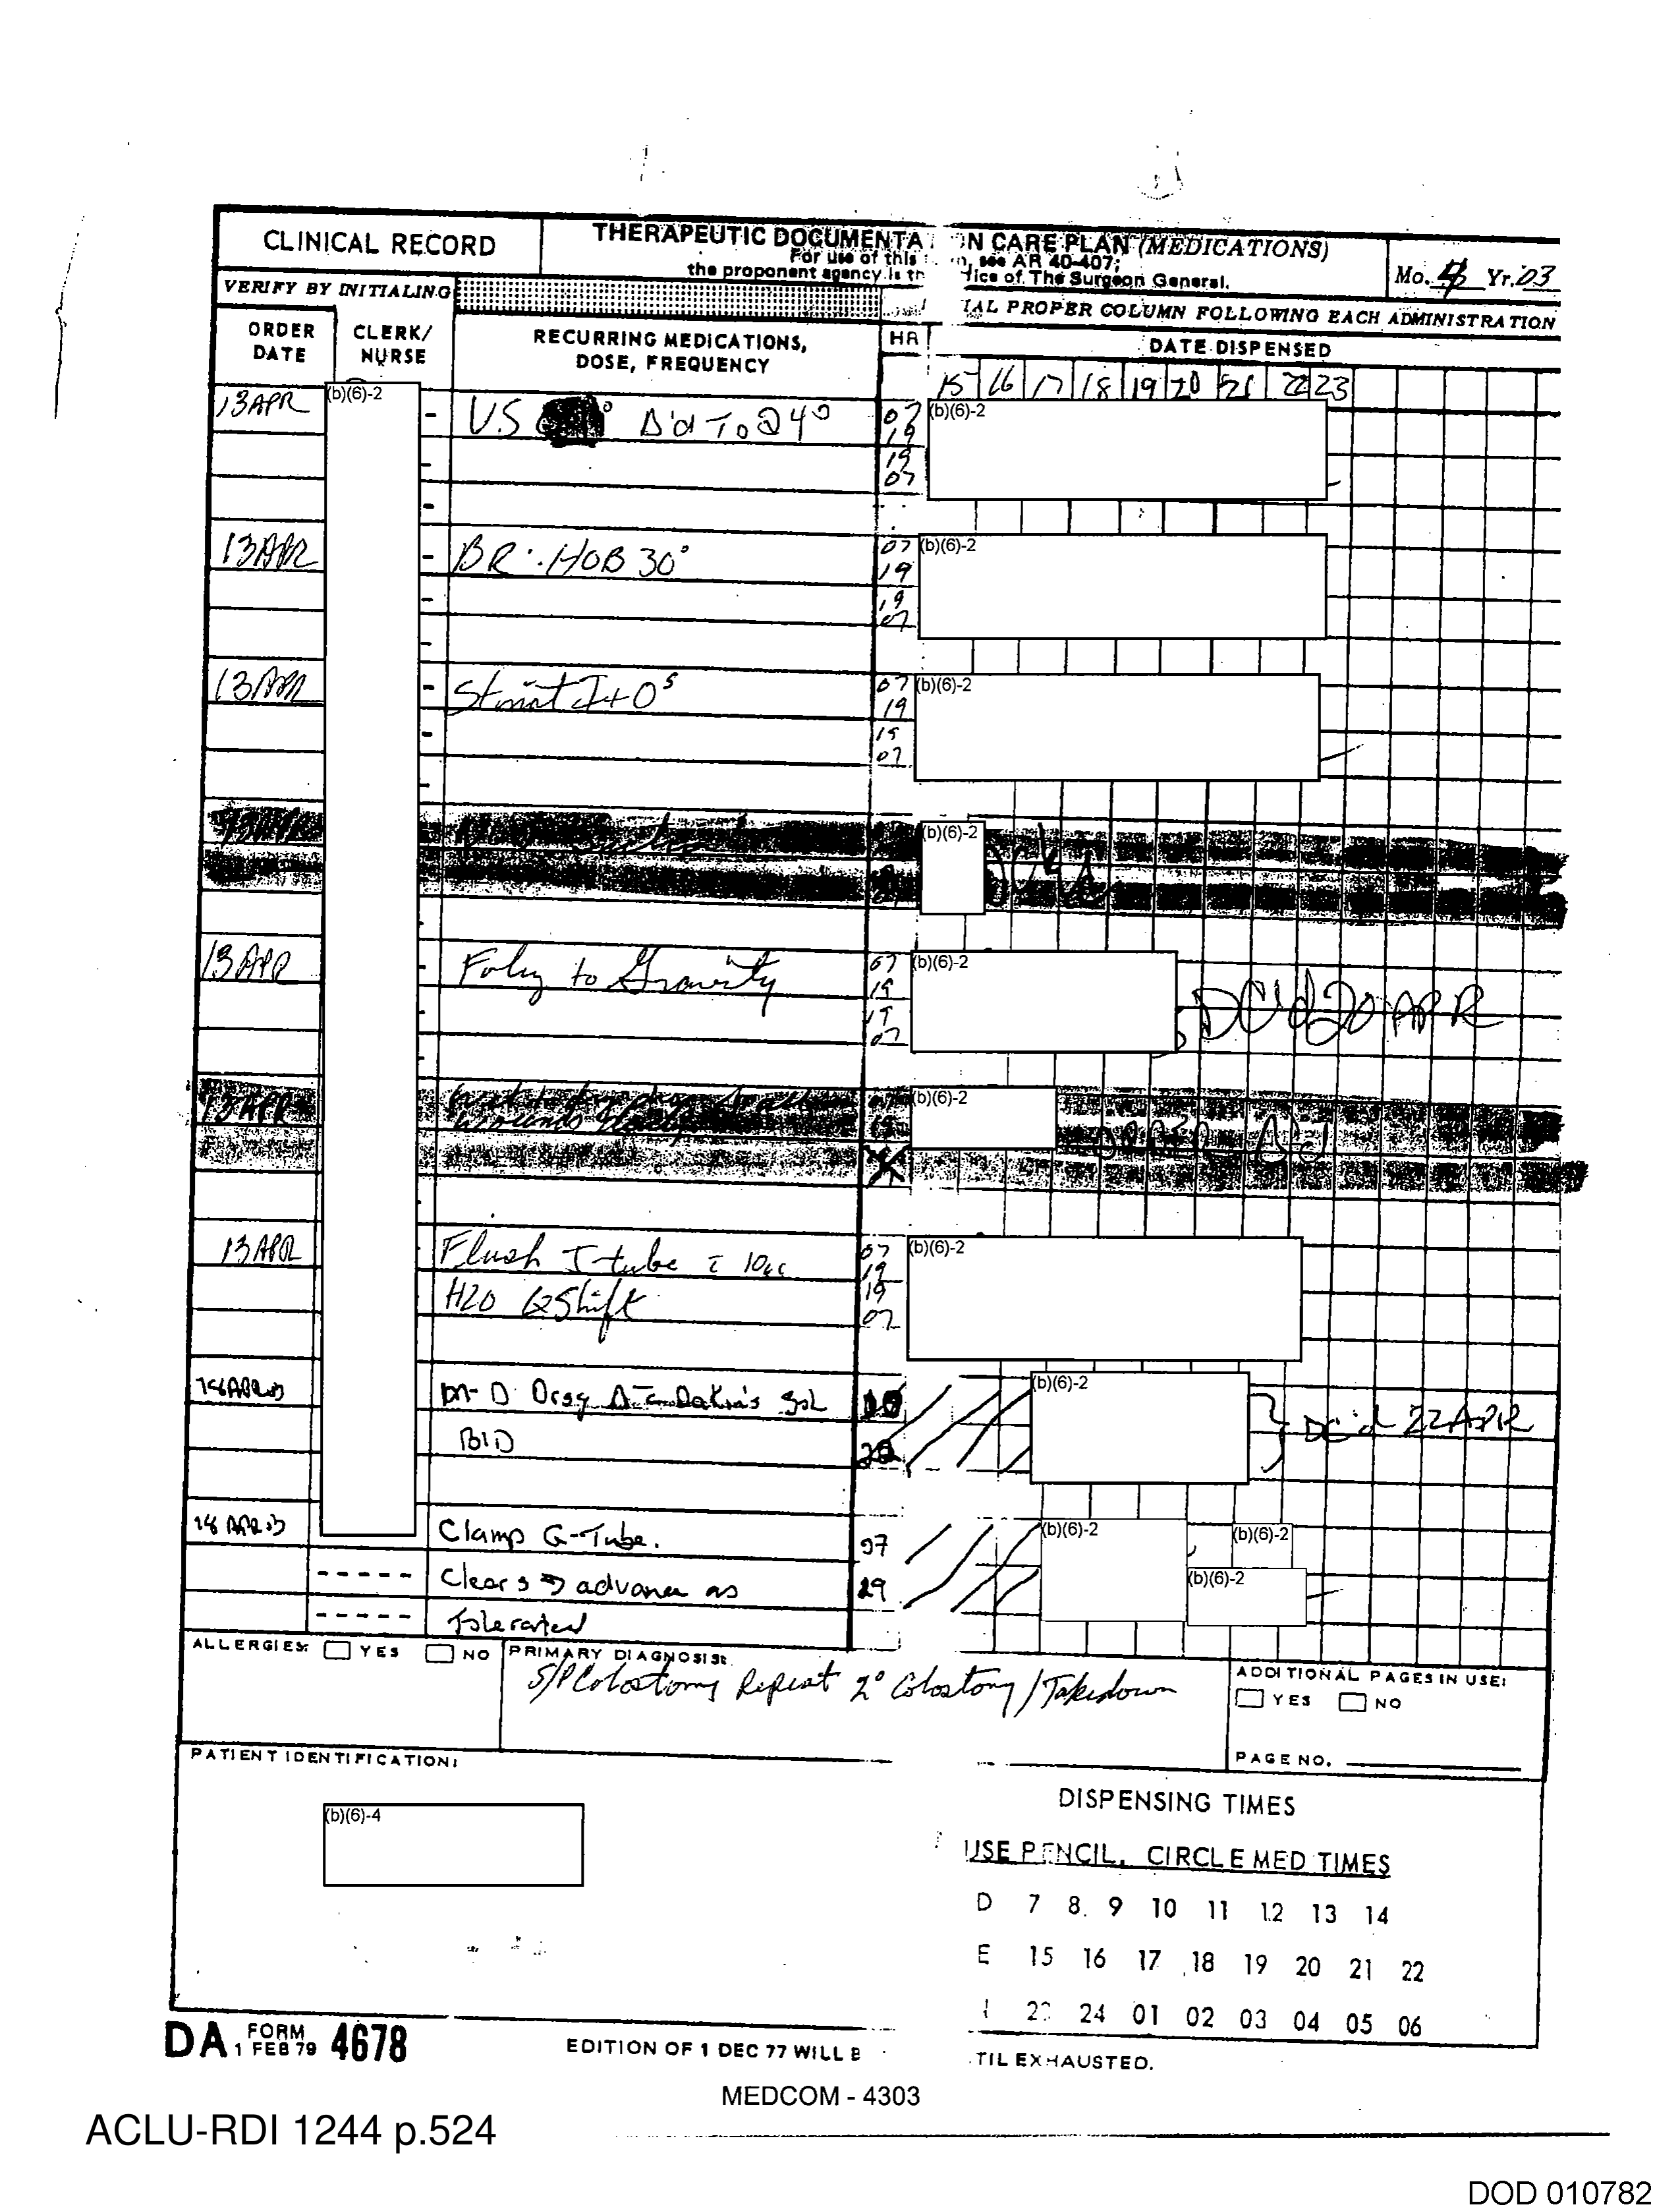 CLINICAL RECORD
THERAPEUTIC DOCUMENTA N CARE PLAN (MEDICATIONS)
For use of this n, see AR 40-407;
the proponent agency is th fice of The Surgeon General.
Mo. 4 Yr. 03
VERIFY BY INITIALING
IAL PROPER COLUMN FOLLOWING EACH ADMINISTRATION
ORDER DATE
CLERK/ NURSE
RECURRING MEDICATIONS, DOSE, FREQUENCY
HR
DATE DISPENSED
15 16 17 18 19 20 21 22 23
13APR (b)(6)-2 V.S Δ'd To Q 4° 07 (b)(6)-2
19
19
07
13APR BR . HOB 30° 07 (b)(6)-2
19
19
07
13APR I+O's 07 (b)(6)-2
19
19
07
(b)(6)-2
13APR Foley to Gravity 07 (b)(6)-2
19
19
07
DC'd 20 APR
13APR (b)(6)-2
wounds
13APR Flush J-tube c̄ 10cc 07 (b)(6)-2
H2O Q Shift 19
19
07
Dakin's Sol 10 (b)(6)-2
BID 20
DC'd 22 APR
18 APR 03 Clamp G-Tube. 07 (b)(6)-2 (b)(6)-2
Clears → advance as 19 (b)(6)-2
Tolerated
ALLERGIES: YES NO
PRIMARY DIAGNOSIS:
S/P Colostomy Repeat 2° Colostomy/Takedown
ADDITIONAL PAGES IN USE:
YES NO
PAGE NO.
PATIENT IDENTIFICATION:
(b)(6)-4
DISPENSING TIMES
USE PENCIL, CIRCLE MED TIMES
D 7 8 9 10 11 12 13 14
E 15 16 17 18 19 20 21 22
24 01 02 03 04 05 06
DA FORM 4678
1 FEB 79
EDITION OF 1 DEC 77 WILL B TIL EXHAUSTED.
MEDCOM - 4303
ACLU-RDI 1244 p.524
DOD 010782